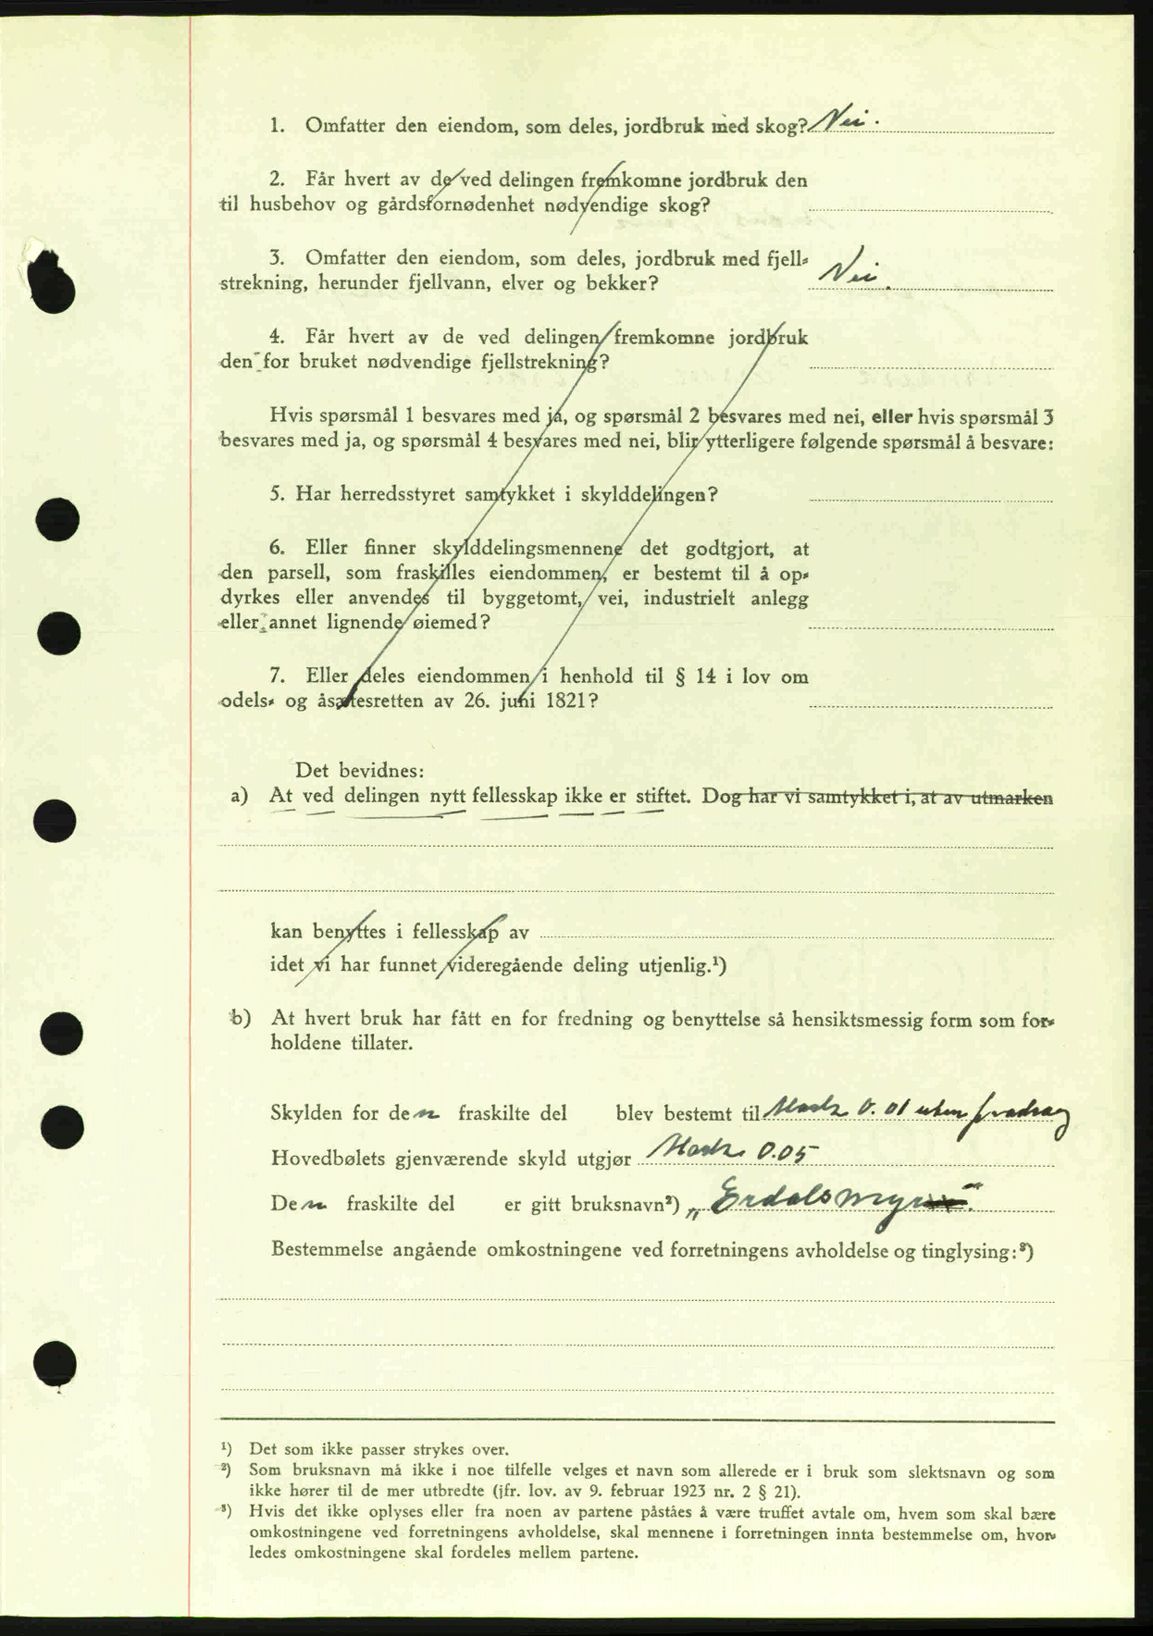 1. Omfatter den eiendom, som deles, jordbruk med skog? Nei.
2. Får hvert av de ved delingen fremkomne jordbruk den
til husbehov og gårdsfornødenhet nødvendige skog?
3. Omfatter den eiendom, som deles, jordbruk med fjell-
strekning, herunder fjellvann, elver og bekker? Nei.
4. Får hvert av de ved delingen fremkomne jordbruk
den for bruket nødvendige fjellstrekning?
Hvis spørsmål 1 besvares med ja, og spørsmål 2 besvares med nei, eller hvis spørsmål 3
besvares med ja, og spørsmål 4 besvares med nei, blir ytterligere følgende spørsmål å besvare:
5. Har herredsstyret samtykket i skylddelingen?
6. Eller finner skylddelingsmennene det godtgjort, at
den parsell, som fraskilles eiendommen, er bestemt til å op-
dyrkes eller anvendes til byggetomt, vei, industrielt anlegg
eller annet lignende øiemed?
7. Eller deles eiendommen i henhold til § 14 i lov om
odels- og åsætesretten av 26. juni 1821?
Det bevidnes:
a) At ved delingen nytt fellesskap ikke er stiftet. Dog har vi samtykket i, at av utmarken
kan benyttes i fellesskap av
idet vi har funnet videregående deling utjenlig.¹)
b) At hvert bruk har fått en for fredning og benyttelse så hensiktsmessig form som for-
holdene tillater.
Skylden for den fraskilte del blev bestemt til Mark 0.01 uten fradrag
Hovedbølets gjenværende skyld utgjør Mark 0.05
Den fraskilte del er gitt bruksnavn²) „Erdalsmyr".
Bestemmelse angående omkostningene ved forretningens avholdelse og tinglysing:³)
¹) Det som ikke passer strykes over.
²) Som bruksnavn må ikke i noe tilfelle velges et navn som allerede er i bruk som slektsnavn og som
ikke hører til de mer utbredte (jfr. lov. av 9. februar 1923 nr. 2 § 21).
³) Hvis det ikke oplyses eller fra noen av partene påståes å være truffet avtale om, hvem som skal bære
omkostningene ved forretningens avholdelse, skal mennene i forretningen innta bestemmelse om, hvor-
ledes omkostningene skal fordeles mellem partene.